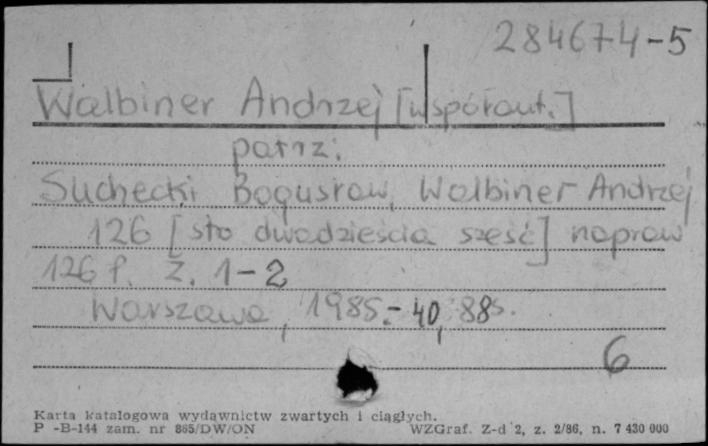 284674-5
Walbiner Andrzej [współaut.]
patrz:
Suchecki Bogusław, Walbiner Andrzej
126 [sto dwadzieścia sześć] napraw
126 p. Z. 1-2
Warszawa, 1985.- 40, 88s.
6
Karta katalogowa wydawnictw zwartych i ciągłych.
P -B-144 zam. nr 865/DW/ON WZGraf. Z-d 2, z. 2/86, n. 7 430 000